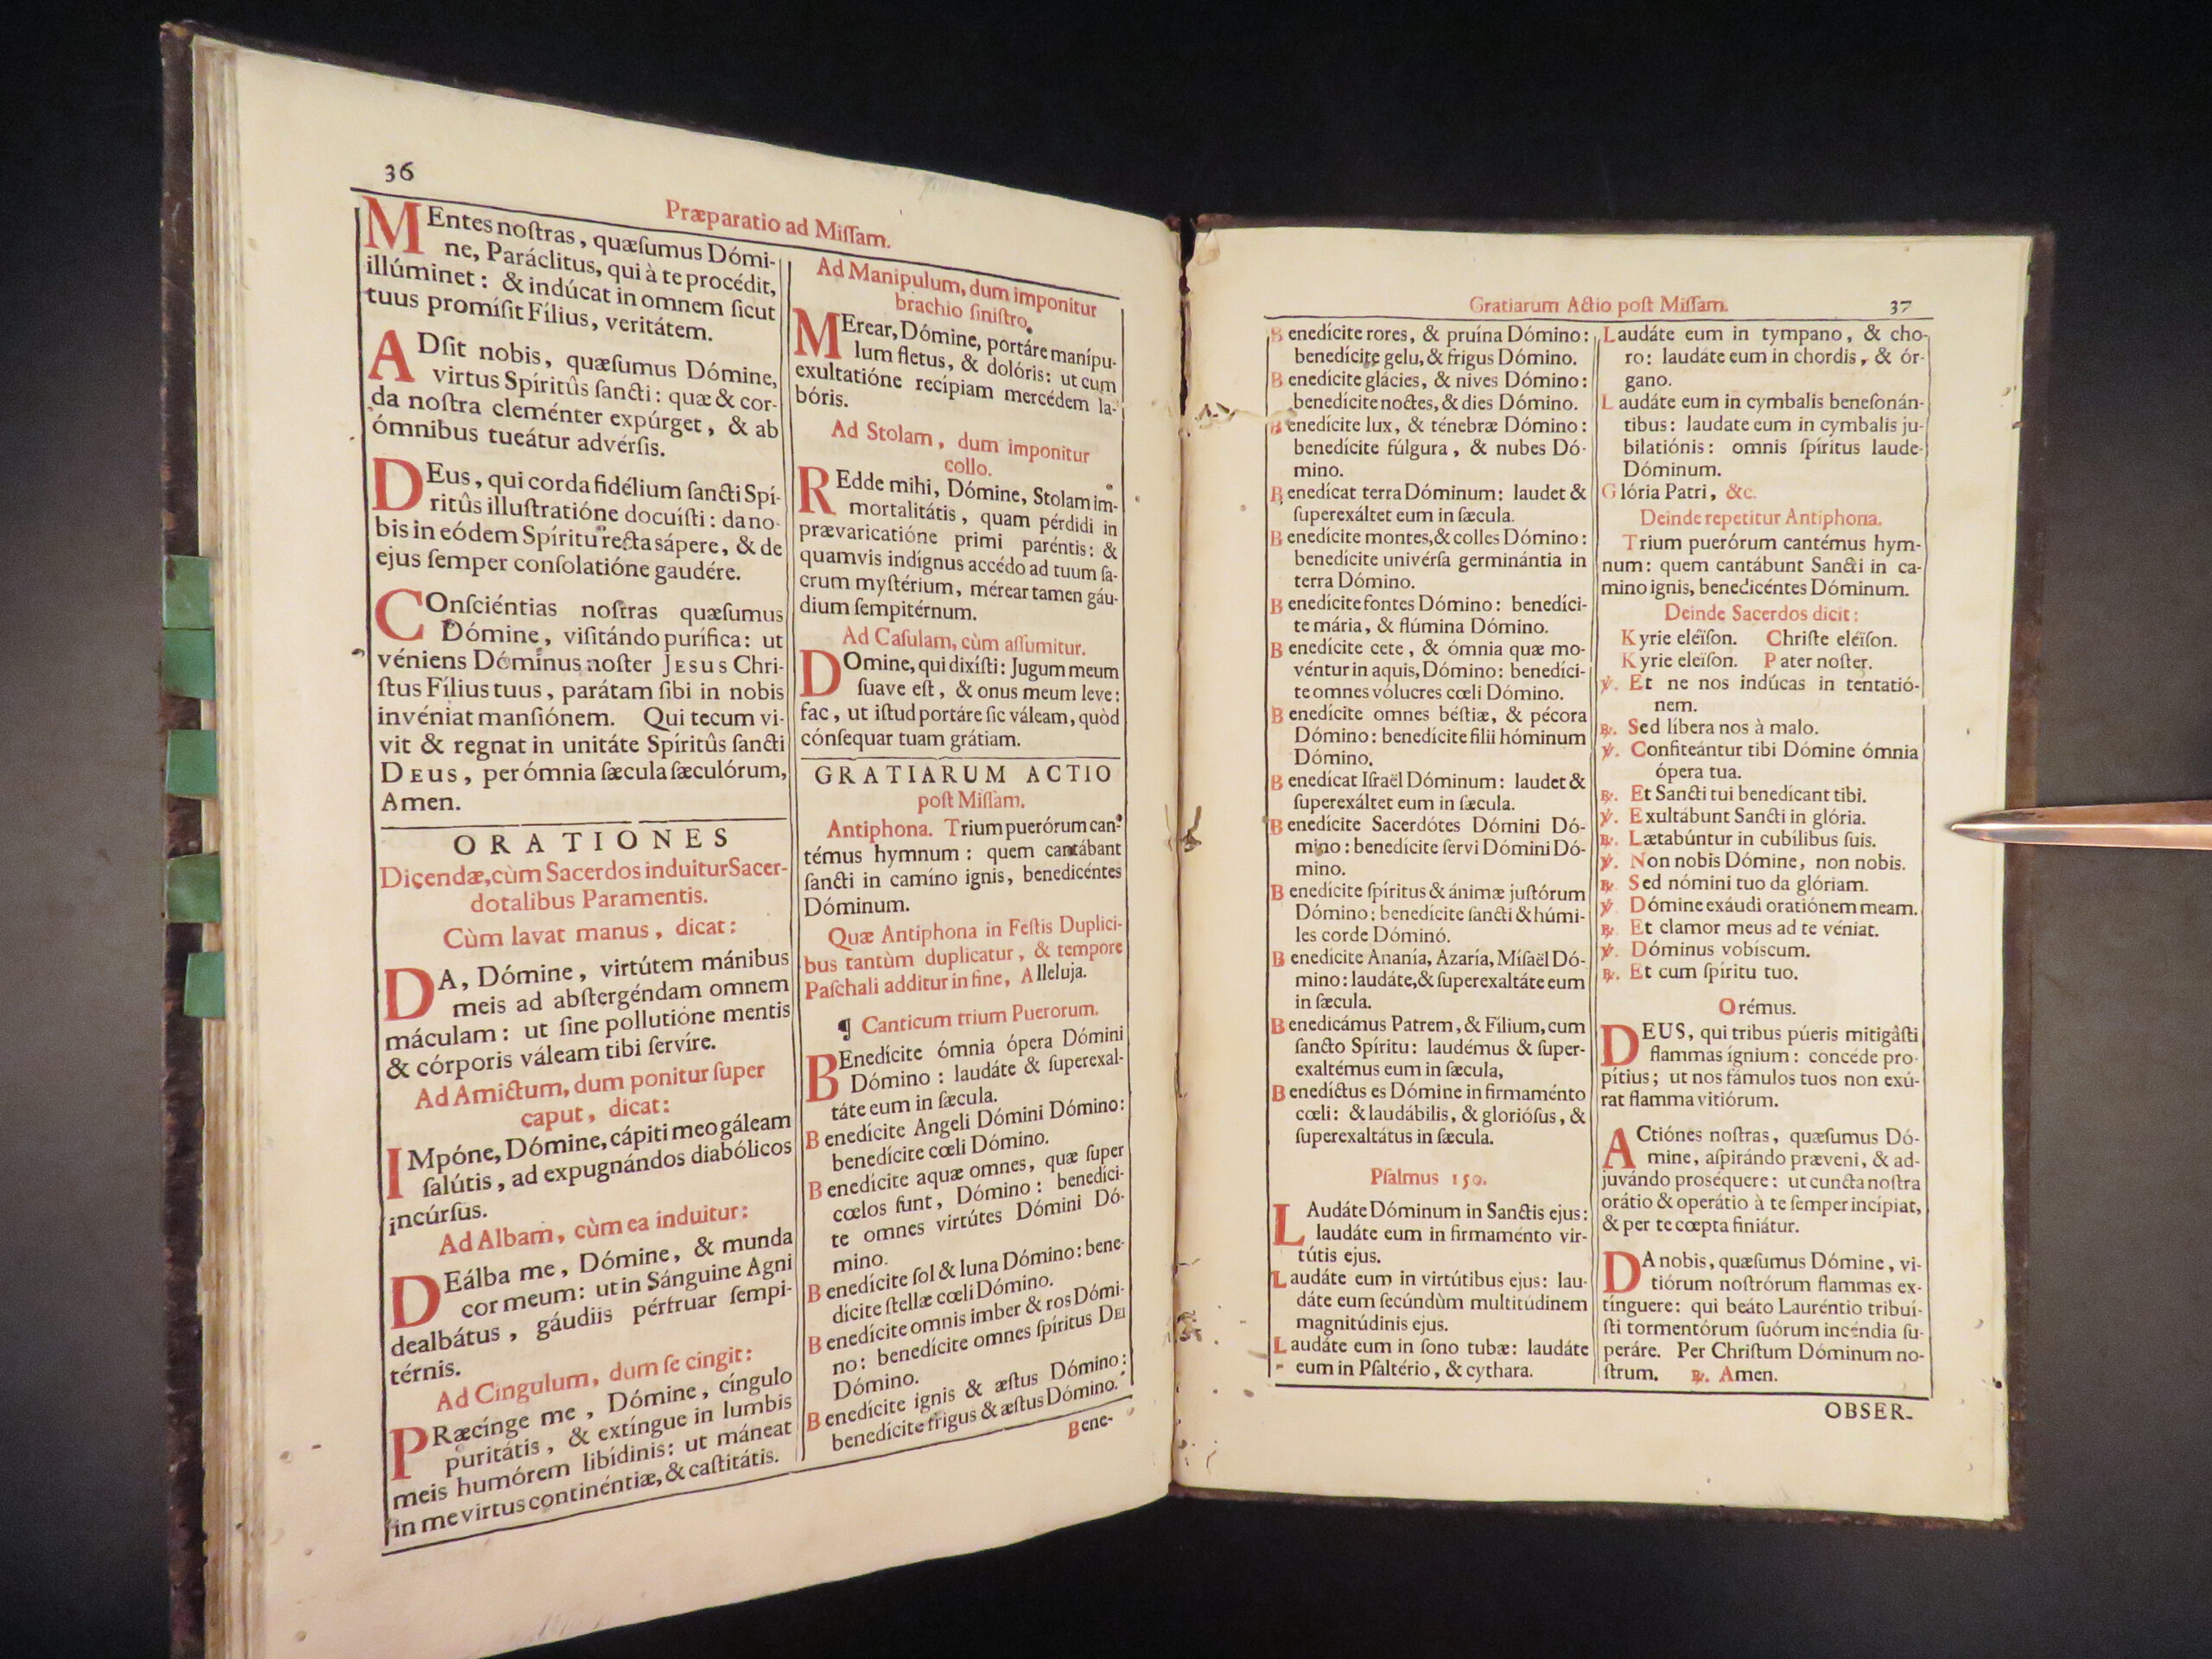 36
Præparatio ad Miſſam.
MEntes noſtras, quæſumus Dómi-
ne, Paráclitus, qui à te procédit,
illúminet: & indúcat in omnem ſicut
tuus promíſit Fílius, veritátem.
ADſit nobis, quæſumus Dómine,
virtus Spíritûs ſancti: quæ & cor-
da noſtra cleménter expúrget, & ab
ómnibus tueátur advérſis.
DEus, qui corda fidélium ſancti Spí-
ritûs illuſtratióne docuíſti: da no-
bis in eódem Spíritu recta sápere, & de
ejus ſemper conſolatióne gaudére.
COnſciéntias noſtras quæſumus
Dómine, viſitándo purífica: ut
véniens Dóminus noſter JESUS Chri-
ſtus Fílius tuus, parátam ſibi in nobis
invéniat manſiónem. Qui tecum vi-
vit & regnat in unitáte Spíritûs ſancti
DEUS, per ómnia ſæcula ſæculórum,
Amen.
ORATIONES
Dicendæ, cùm Sacerdos induitur Sacer-
dotalibus Paramentis.
Cùm lavat manus, dicat:
DA, Dómine, virtútem mánibus
meis ad abſtergéndam omnem
máculam: ut ſine pollutióne mentis
& córporis váleam tibi ſervíre.
Ad Amictum, dum ponitur ſuper
caput, dicat:
IMpóne, Dómine, cápiti meo gáleam
ſalútis, ad expugnándos diabólicos
incúrſus.
Ad Albam, cùm ea induitur:
DEálba me, Dómine, & munda
cor meum: ut in Sánguine Agni
dealbátus, gáudiis pérfruar ſempi-
térnis.
Ad Cingulum, dum ſe cingit:
PRæcínge me, Dómine, cíngulo
puritátis, & extíngue in lumbis
meis humórem libídinis: ut máneat
in me virtus continéntiæ, & caſtitátis.
Ad Manipulum, dum imponitur
brachio ſiniſtro.
MErear, Dómine, portáre manípu-
lum fletus, & dolóris: ut cum
exultatióne recípiam mercédem la-
bóris.
Ad Stolam, dum imponitur
collo.
REdde mihi, Dómine, Stolam im-
mortalitátis, quam pérdidi in
prævaricatióne primi paréntis: &
quamvis indígnus accédo ad tuum ſa-
crum myſtérium, mérear tamen gáu-
dium ſempitérnum.
Ad Caſulam, cùm aſſumitur.
DOmine, qui dixíſti: Jugum meum
ſuave eſt, & onus meum leve:
fac, ut iſtud portáre ſic váleam, quòd
cónſequar tuam grátiam.
GRATIARUM ACTIO
poſt Miſſam.
Antiphona. Trium puerórum can-
témus hymnum: quem cantábant
ſancti in camíno ignis, benedicéntes
Dóminum.
Quæ Antiphona in Feſtis Duplici-
bus tantùm duplicatur, & tempore
Paſchali additur in fine, Alleluja.
¶ Canticum trium Puerorum.
BEnedícite ómnia ópera Dómini
Dómino: laudáte & ſuperexal-
táte eum in ſæcula.
Benedícite Angeli Dómini Dómino:
benedícite cœli Dómino.
Benedícite aquæ omnes, quæ ſuper
cœlos ſunt, Dómino: benedíci-
te omnes virtútes Dómini Dó-
mino.
Benedícite ſol & luna Dómino: bene-
dícite ſtellæ cœli Dómino.
Benedícite omnis imber & ros Dómi-
no: benedícite omnes ſpíritus DEI
Dómino.
Benedícite ignis & æſtus Dómino:
benedícite frigus & æſtus Dómino.
Bene-
Gratiarum Actio poſt Miſſam.
37
Benedícite rores, & pruína Dómino:
benedícite gelu, & frigus Dómino.
Benedícite glácies, & nives Dómino:
benedícite noctes, & dies Dómino.
Benedícite lux, & ténebræ Dómino:
benedícite fúlgura, & nubes Dó-
mino.
Benedícat terra Dóminum: laudet &
ſuperexáltet eum in ſæcula.
Benedícite montes, & colles Dómino:
benedícite univérſa germinántia in
terra Dómino.
Benedícite fontes Dómino: benedíci-
te mária, & flúmina Dómino.
Benedícite cete, & ómnia quæ mo-
véntur in aquis, Dómino: benedíci-
te omnes vólucres cœli Dómino.
Benedícite omnes béſtiæ, & pécora
Dómino: benedícite filii hóminum
Dómino.
Benedícat Iſraël Dóminum: laudet &
ſuperexáltet eum in ſæcula.
Benedícite Sacerdótes Dómini Dó-
mino: benedícite ſervi Dómini Dó-
mino.
Benedícite ſpíritus & ánimæ juſtórum
Dómino: benedícite ſancti & húmi-
les corde Dóminó.
Benedícite Ananía, Azaría, Míſaël Dó-
mino: laudáte, & ſuperexaltáte eum
in ſæcula.
Benedicámus Patrem, & Fílium, cum
ſancto Spíritu: laudémus & ſuper-
exaltémus eum in ſæcula,
Benedíctus es Dómine in firmaménto
cœli: & laudábilis, & glorióſus, &
ſuperexaltátus in ſæcula.
Pſalmus 150.
LAudáte Dóminum in Sanctis ejus:
laudáte eum in firmaménto vir-
tútis ejus.
Laudáte eum in virtútibus ejus: lau-
dáte eum ſecúndùm multitúdinem
magnitúdinis ejus.
Laudáte eum in ſono tubæ: laudáte
eum in Pſaltério, & cythara.
Laudáte eum in tympano, & cho-
ro: laudáte eum in chordis, & ór-
gano.
Laudáte eum in cymbalis beneſonán-
tibus: laudate eum in cymbalis ju-
bilatiónis: omnis ſpíritus laude-
Dóminum.
Glória Patri, &c.
Deinde repetitur Antiphona.
Trium puerórum cantémus hym-
num: quem cantábunt Sancti in ca-
mino ignis, benedicéntes Dóminum.
Deinde Sacerdos dicit:
Kyrie eléïſon. Chriſte eléïſon.
Kyrie eleïſon. Pater noſter.
℣. Et ne nos indúcas in tentatió-
nem.
℟. Sed líbera nos à malo.
℣. Confiteántur tibi Dómine ómnia
ópera tua.
℟. Et Sancti tui benedícant tibi.
℣. Exultábunt Sancti in glória.
℟. Lætabúntur in cubílibus ſuis.
℣. Non nobis Dómine, non nobis.
℟. Sed nómini tuo da glóriam.
℣. Dómine exáudi oratiónem meam.
℟. Et clamor meus ad te véniat.
℣. Dóminus vobíscum.
℟. Et cum ſpíritu tuo.
Orémus.
DEUS, qui tribus púeris mitigâſti
flammas ígnium: concéde pro-
pítius; ut nos fámulos tuos non exú-
rat flamma vitiórum.
ACtiónes noſtras, quæſumus Dó-
mine, aſpirándo præveni, & ad-
juvándo proséquere: ut cuncta noſtra
orátio & operátio à te ſemper incípiat,
& per te cœpta finiátur.
DA nobis, quæſumus Dómine, vi-
tiórum noſtrórum flammas ex-
tínguere: qui beáto Lauréntio tribuí-
ſti tormentórum ſuórum incéndia ſu-
peráre. Per Chriſtum Dóminum no-
ſtrum. ℟. Amen.
OBSER-